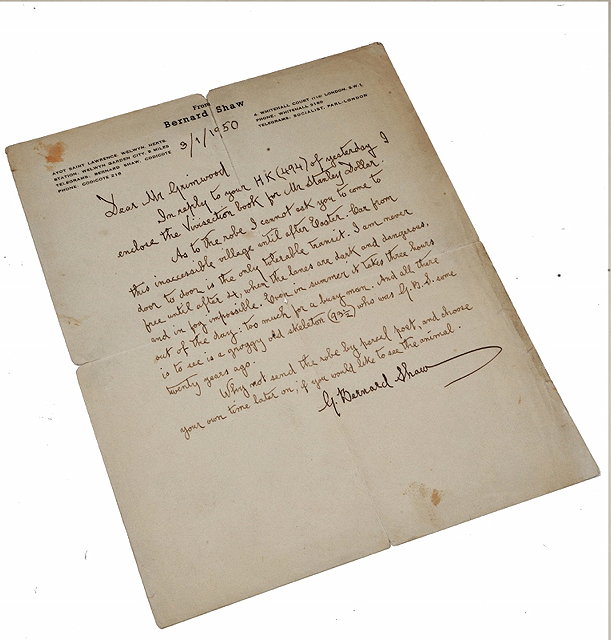 From
Bernard Shaw
AYOT SAINT LAWRENCE, WELWYN, HERTS.
STATION: WELWYN GARDEN CITY, 5 MILES
TELEGRAMS: BERNARD SHAW, CODICOTE
PHONE: CODICOTE 218
4, WHITEHALL COURT LONDON, S.W.1.
PHONE: WHITEHALL 3160
TELEGRAMS: SOCIALIST, PARL-LONDON
3/1/1950
Dear Mr Grimwood
In reply to your HK(494) of yesterday I
enclose the Vivisection book for Mr Stanley Dollar.
As to the robe I cannot ask you to come to
this inaccessible village until after Easter. Car from
door to door is the only tolerable transit. I am never
free until after 4, when the lanes are dark and dangerous,
and in fog impossible. Even in summer it takes three hours
out of the day: too much for a busy man. And all there
is to see is a groggy old skeleton (93½) who was G.B.S. some
twenty years ago.
Why not send the robe by parcel post, and choose
your own time later on, if you would like to see the animal.
G. Bernard Shaw